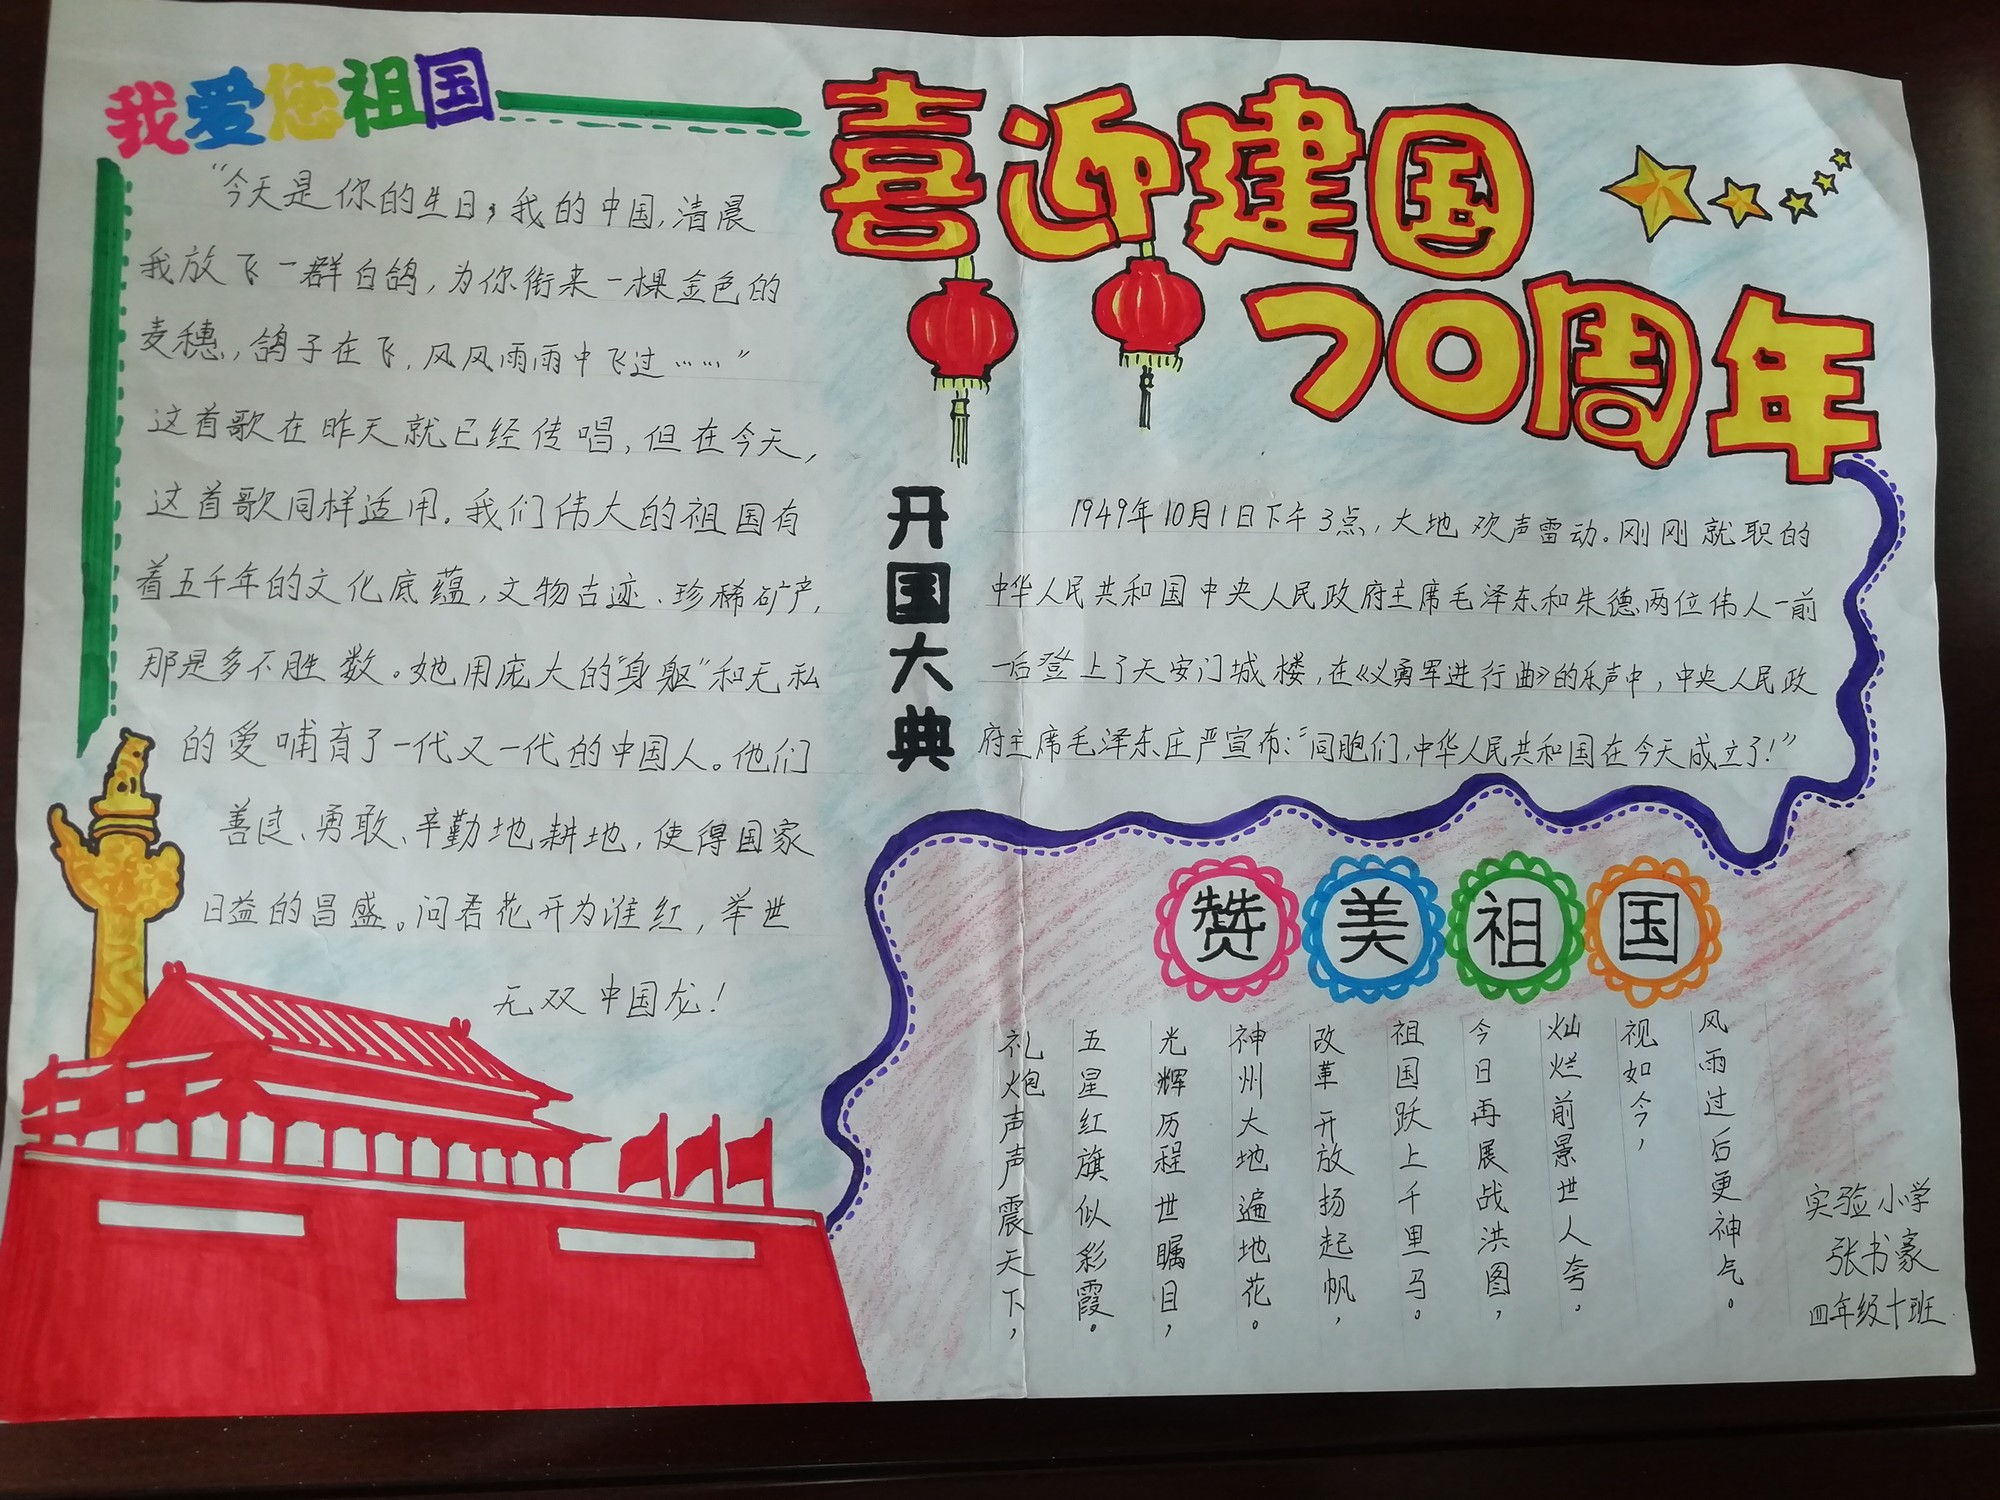 我爱您祖国
“今天是你的生日，我的中国，清晨
我放飞一群白鸽，为你衔来一棵金色的
麦穗，鸽子在飞，风风雨雨中飞过……”
这首歌在昨天就已经传唱，但在今天，
这首歌同样适用。我们伟大的祖国有
着五千年的文化底蕴，文物古迹、珍稀矿产，
那是多不胜数。她用庞大的“身躯”和无私
的爱哺育了一代又一代的中国人。他们
善良、勇敢、辛勤地耕地，使得国家
日益的昌盛。问看花开为谁红，举世
无双中国龙！
喜迎建国
70周年
开国大典
1949年10月1日下午3点，大地欢声雷动。刚刚就职的
中华人民共和国中央人民政府主席毛泽东和朱德两位伟人一前
一后登上了天安门城楼，在《义勇军进行曲》的乐声中，中央人民政
府主席毛泽东庄严宣布：“同胞们，中华人民共和国在今天成立了！”
赞美祖国
礼炮声声震天下，
五星红旗似彩霞。
光辉历程世瞩目，
神州大地遍地花。
改革开放扬起帆，
祖国跃上千里马。
今日再展战洪图，
灿烂前景世人夸。
视如今，
风雨过后更神气。
实验小学
张书豪
四年级十班